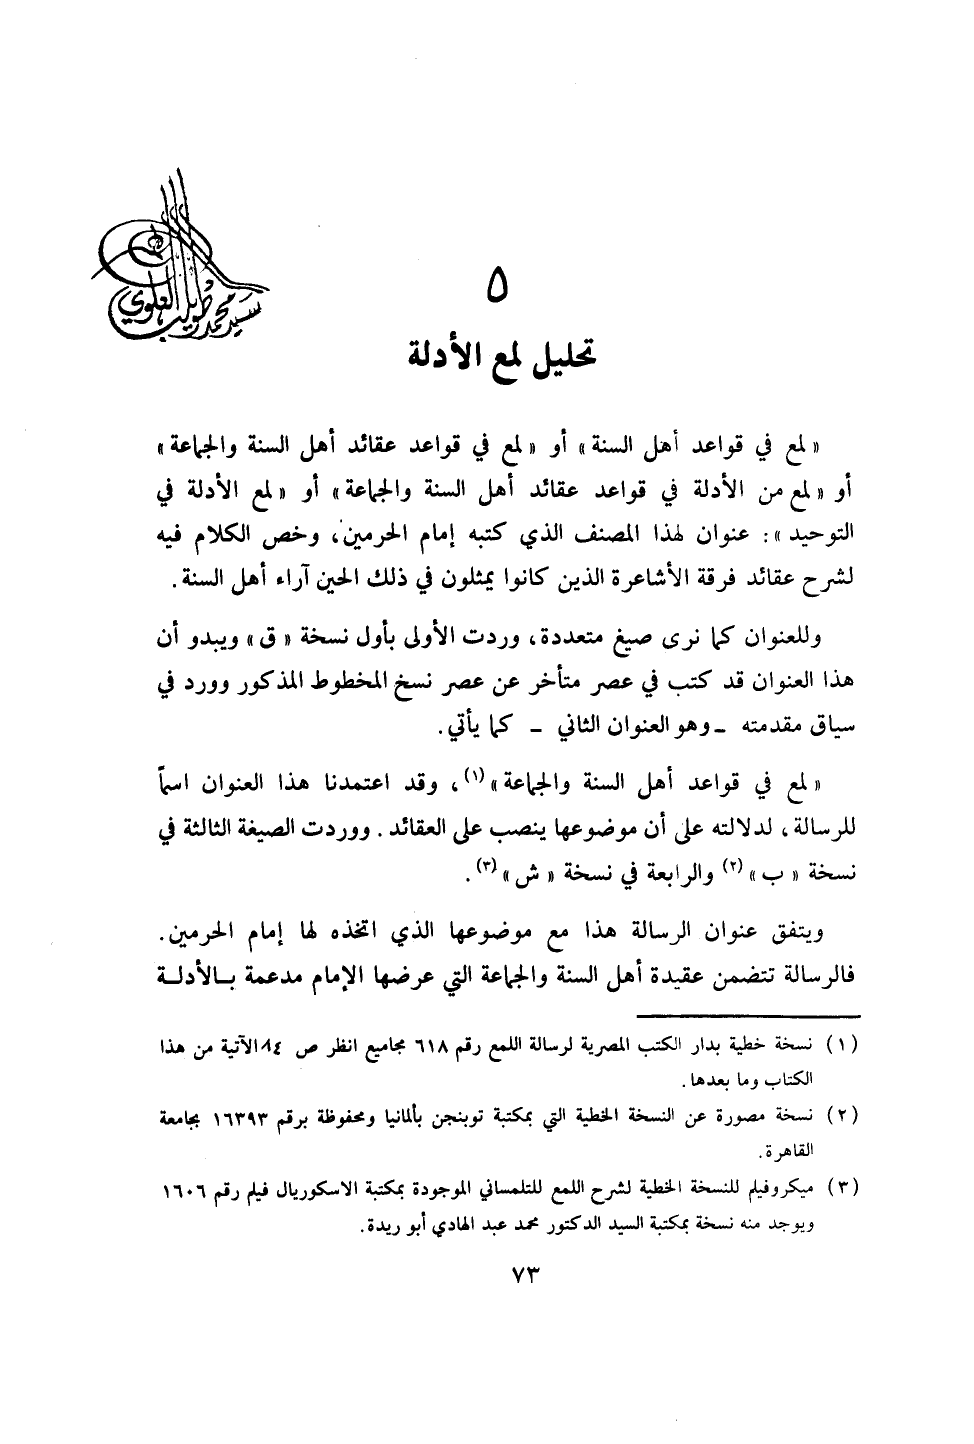 سيد محمد طويلب العلوي
٥
تحليل لمع الأدلة
« لمع في قواعد أهل السنة » أو « لمع في قواعد عقائد أهل السنة والجماعة »
أو « لمع من الأدلة في قواعد عقائد أهل السنة والجماعة » أو « لمع الأدلة في
التوحيد » : عنوان لهذا المصنف الذي كتبه إمام الحرمين ، وخص الكلام فيه
لشرح عقائد فرقة الأشاعرة الذين كانوا يمثلون في ذلك الحين آراء أهل السنة .
وللعنوان كما نرى صيغ متعددة ، وردت الأولى بأول نسخة « ق » ويبدو أن
هذا العنوان قد كتب في عصر متأخر عن عصر نسخ المخطوط المذكور وورد في
سياق مقدمته ـ وهو العنوان الثاني ـ كما يأتي .
« لمع في قواعد أهل السنة والجماعة » (١) ، وقد اعتمدنا هذا العنوان اسماً
للرسالة ، لدلالته على أن موضوعها ينصب على العقائد . ووردت الصيغة الثالثة في
نسخة « ب » (٢) والرابعة في نسخة « ش » (٣) .
ويتفق عنوان الرسالة هذا مع موضوعها الذي اتخذه لها إمام الحرمين .
فالرسالة تتضمن عقيدة أهل السنة والجماعة التي عرضها الإمام مدعمة بـالأدلـة
(١) نسخة خطية بدار الكتب المصرية لرسالة اللمع رقم ٦١٨ مجاميع انظر ص ٨٤ الآتية من هذا
الكتاب وما بعدها .
(٢) نسخة مصورة عن النسخة الخطية التي بمكتبة توبنجن بألمانيا ومحفوظة برقم ١٦٣٩٣ بجامعة
القاهرة .
(٣) ميكروفيلم للنسخة الخطية لشرح اللمع للتلمساني الموجودة بمكتبة الاسكوريال فيلم رقم ١٦٠٦
ويوجد منه نسخة بمكتبة السيد الدكتور محمد عبد الهادي أبو ريدة .
٧٣